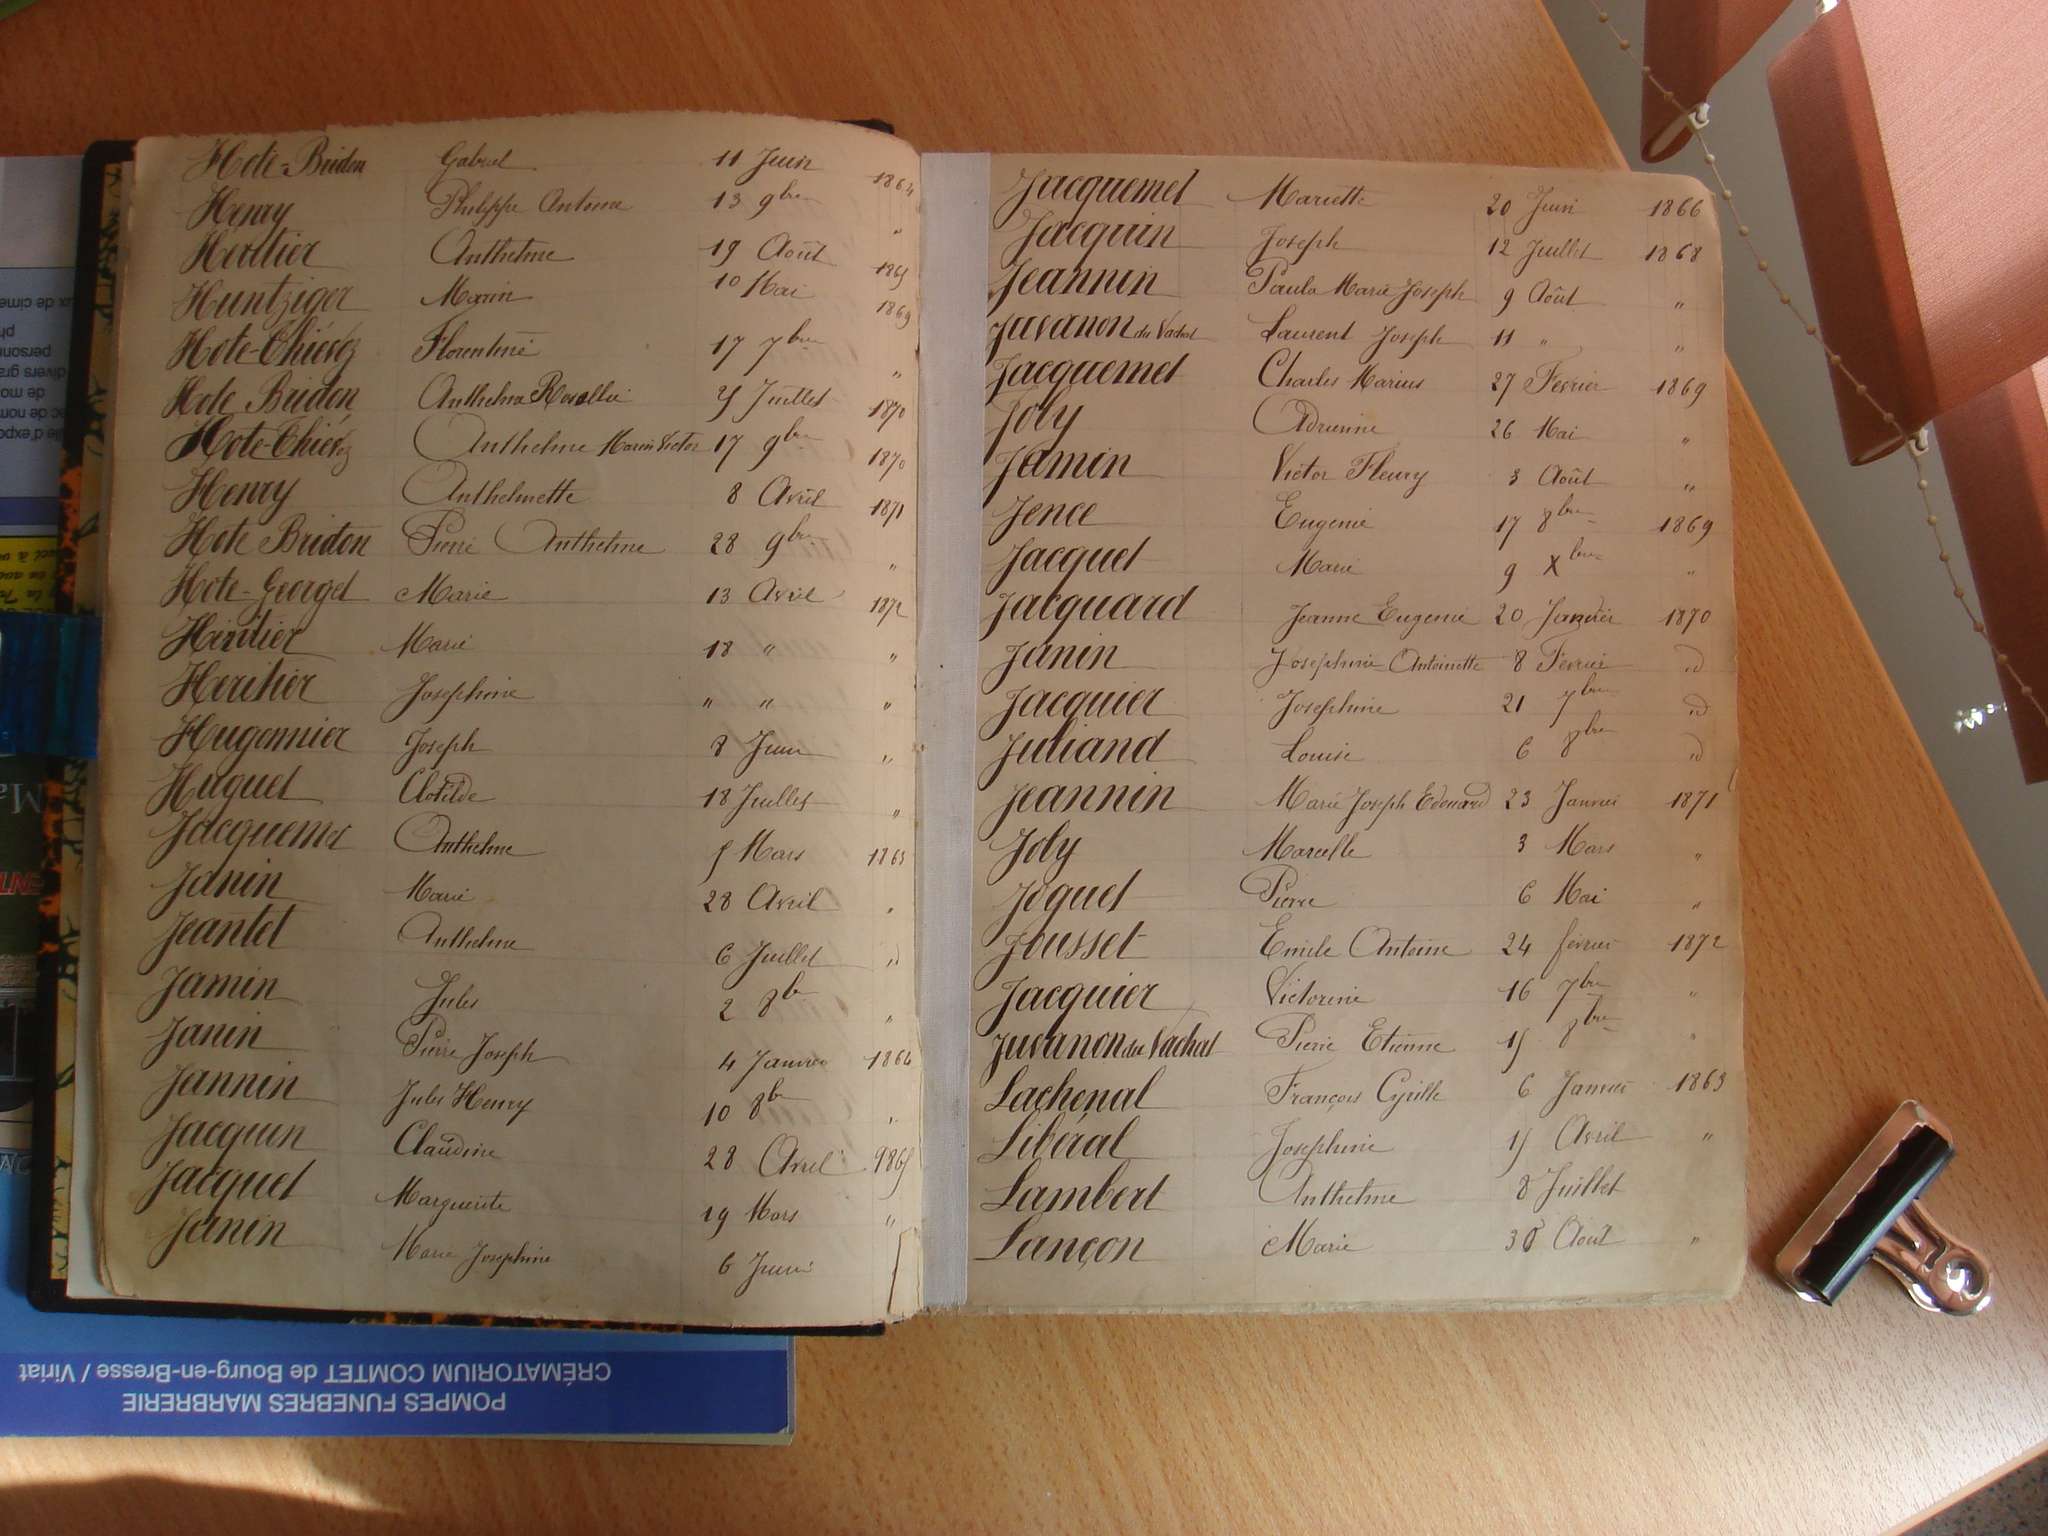 Hote-Bridon Gabriel 11 Juin 1864
Henry Philippe Antoine 13 9bre "
Heritier Anthelme 19 Août 1865
Huntziger Marin 10 Mai 1869
Hote-Chiéroz Florentine 17 7bre "
Hote Bridon Anthelma Rosallie 25 Juillet 1870
Hote-Chiéroz Anthelme Marin Victor 17 9bre 1870
Henry Anthelmette 8 Avril 1871
Hote Bridon Pierre Anthelme 28 9bre "
Hote-Georget Marie 13 Avril 1872
Héritier Marie 18 " "
Heritier Josephine " " "
Hugonnier Joseph 8 Juin "
Huguet Clotilde 18 Juillet "
Jacquemet Anthelme 5 Mars 1863
Janin Marie 28 Avril "
Jeantet Anthelme 6 Juillet id
Jamin Jules 2 8bre "
Janin Pierre Joseph 4 Janvier 1864
Jannin Jules Henry 10 8bre "
Jacquin Claudine 28 Avril 1865
Jacquet Marguerite 19 Mars "
Janin Marie Josephine 6 Juin
Jacquemet Mariette 20 Juin 1866
Jacquin Joseph 12 Juillet 1868
Jeannin Paula Marie Joseph 9 Août "
Juvanon du Vachat Laurent Joseph 11 " "
Jacquemet Charles Marius 27 Fevrier 1869
Joly Adrienne 26 Mai "
Jamin Victor Fleury 3 Août "
Jence Eugenie 17 8bre 1869
Jacquet Marie 9 Xbre "
Jacquard Jeanne Eugenie 20 Janvier 1870
Janin Josephine Antoinette 8 Fevrier id
Jacquier Josephine 21 7bre id
Juliand Louise 6 8bre id
Jeannin Marie Joseph Edouard 23 Janvier 1871
Joly Marcelle 3 Mars "
Joguet Pierre 6 Mai "
Jousset Emile Antoine 24 fevrier 1872
Jacquier Victorine 16 7bre "
Juvanon du Vachat Pierre Etienne 15 8bre "
Lachenal François Cyrille 6 Janvier 1863
Libéral Josephine 15 Avril "
Lambert Anthelme 8 Juillet
Lançon Marie 30 Août "
POMPES FUNEBRES MARBRERIE
CRÉMATORIUM COMTET de Bourg-en-Bresse / Viriat